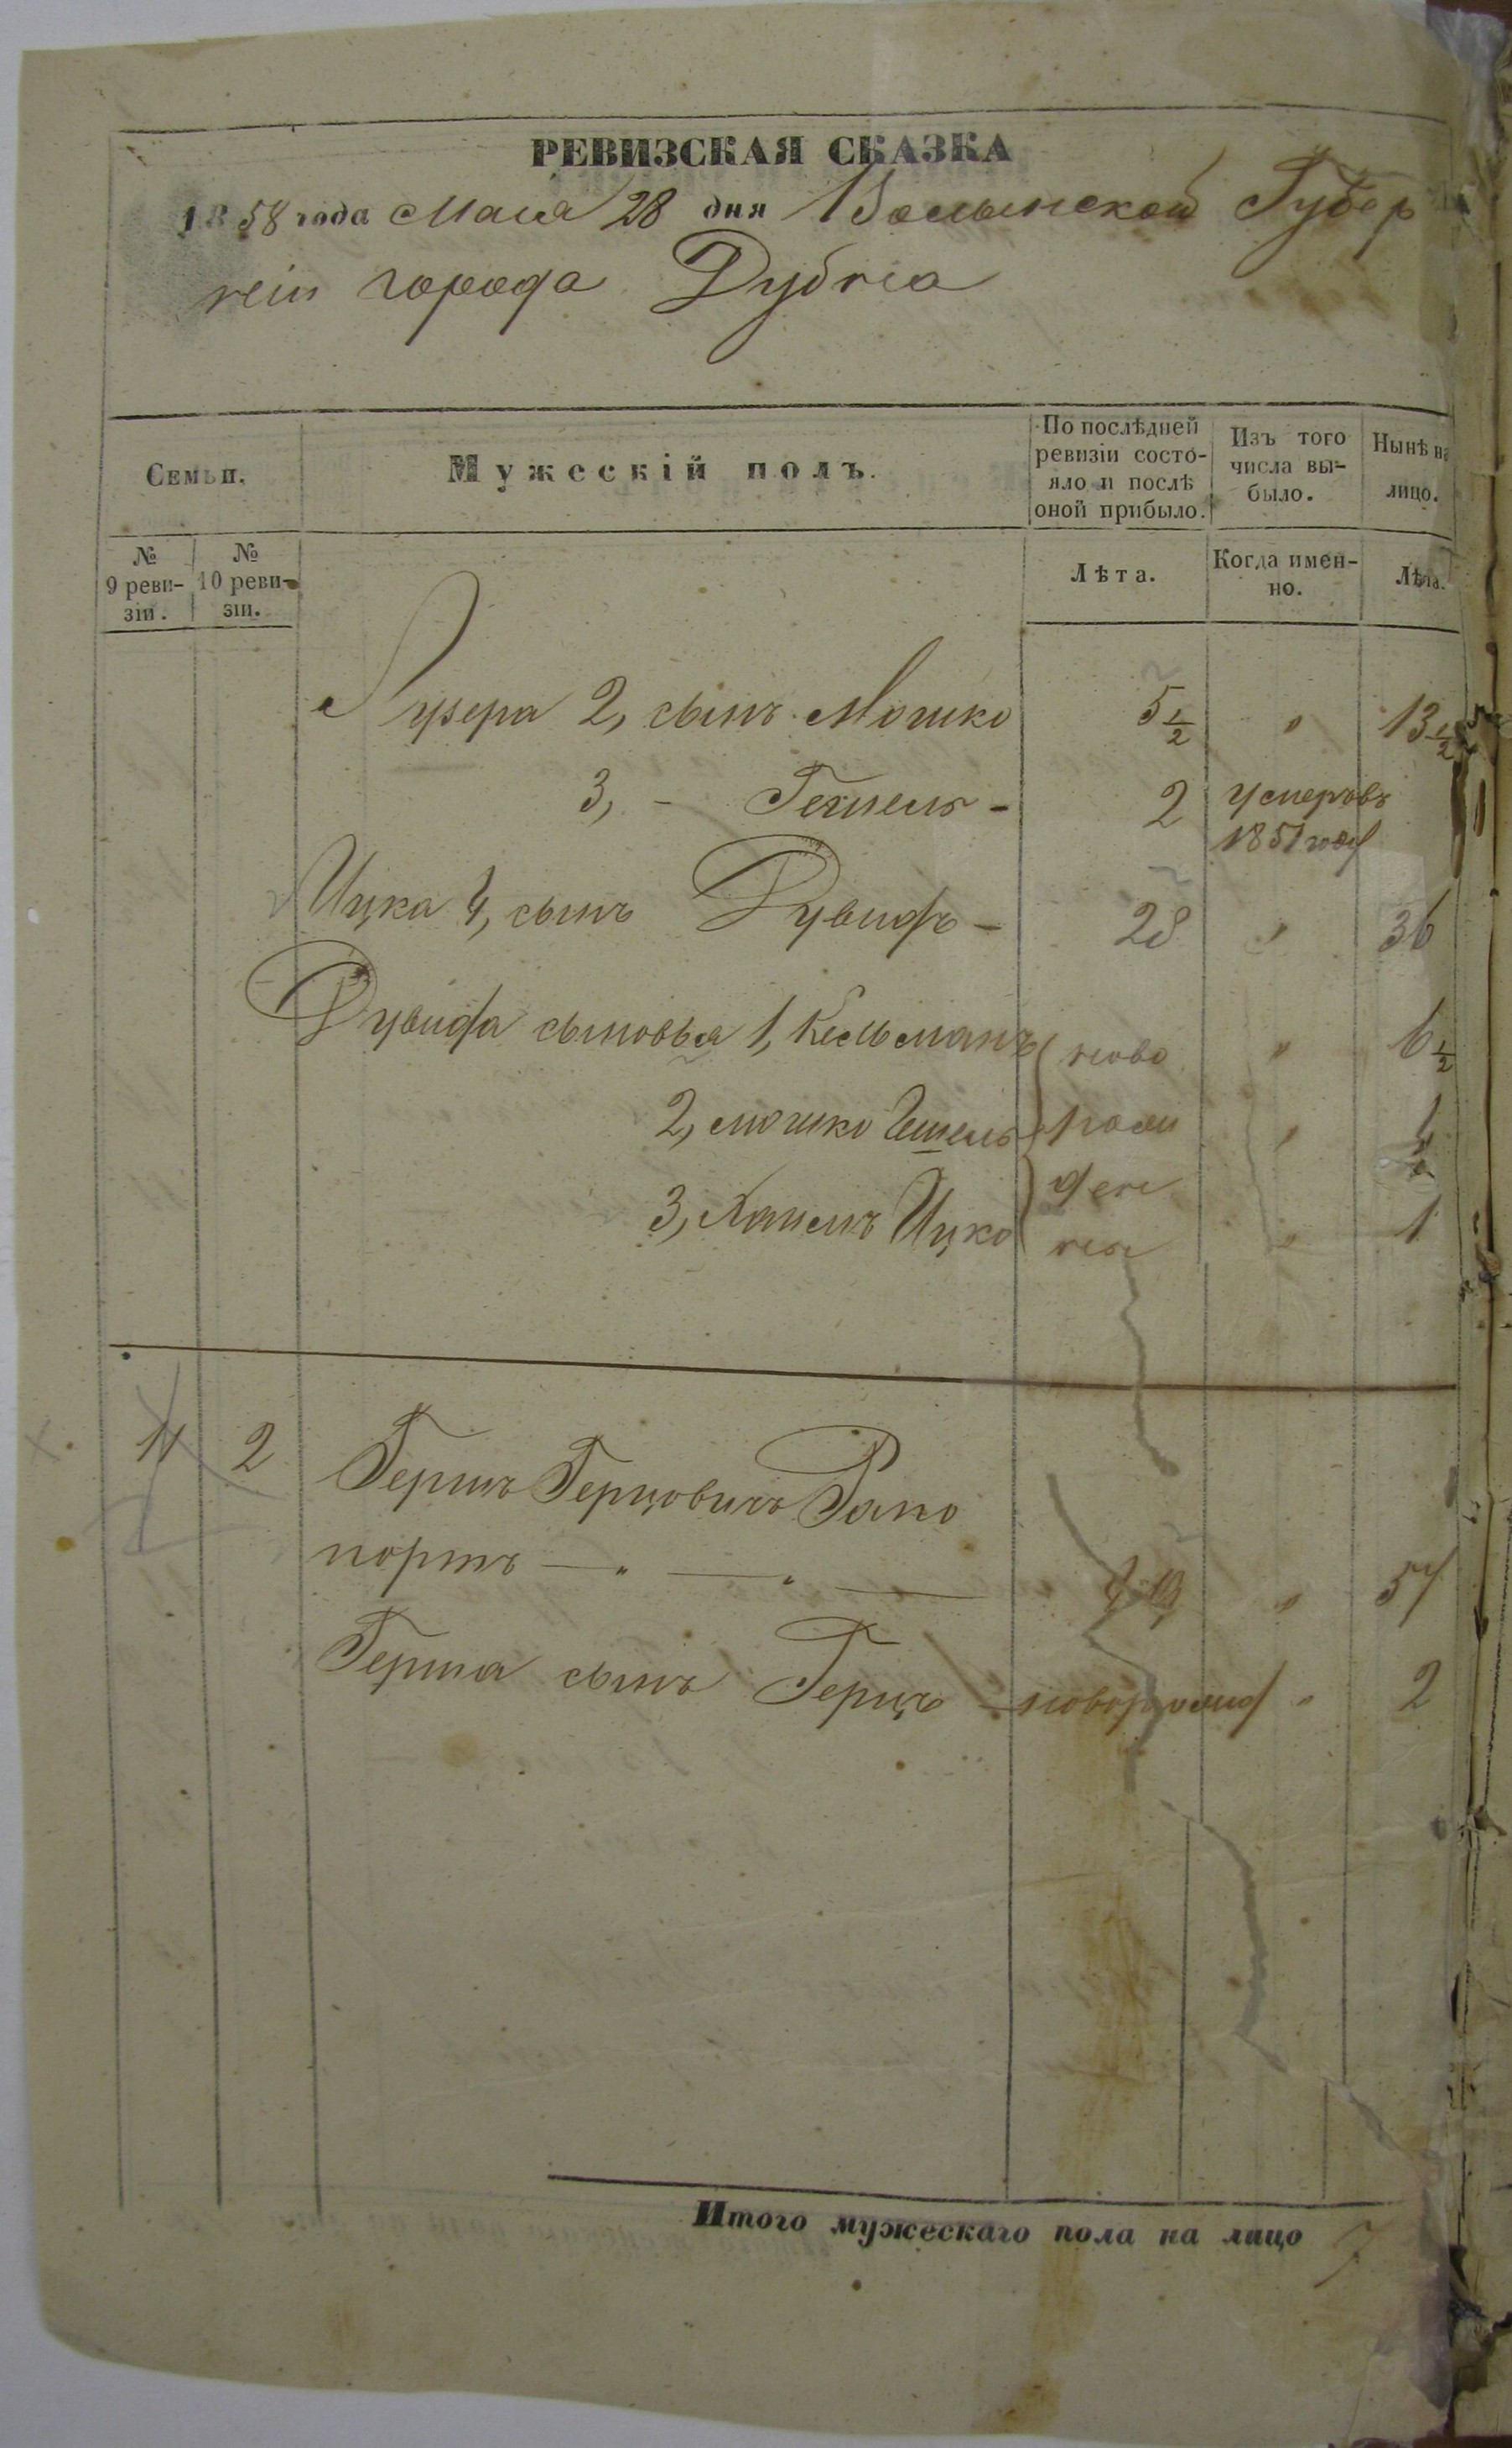 РЕВИЗСКАЯ СКАЗКА
1858 года Маія 28 дня Волынской Губер
ніи города Дубна
Семьи.
Мужескій полъ.
По послѣдней ревизіи состо-
яло и послѣ оной прибыло.
Изъ того числа вы-
было.
Нынѣ на лицо.
№ 9 реви-
зіи.
№ 10 реви-
зіи.
Лѣта.
Когда имен-
но.
Лѣта.
Лузера 2, сынъ Мошко 5 1/2 " 13 1/2
3, - Гешель - 2 умеръ въ
1851 году
Ицка 4, сынъ Дувидъ - 28 " 36
Дувида сыновья 1, Кельманъ ново " 6 1/2
2, Мошко Гешель рож "
ден
3, Хаимъ Ицко ные " 1
11 2 Гершъ Герцовичъ Рапо
портъ — " — " — 49 " 57
Герша сынъ Герцъ - новорожд " 2
Итого мужескаго пола на лицо 7